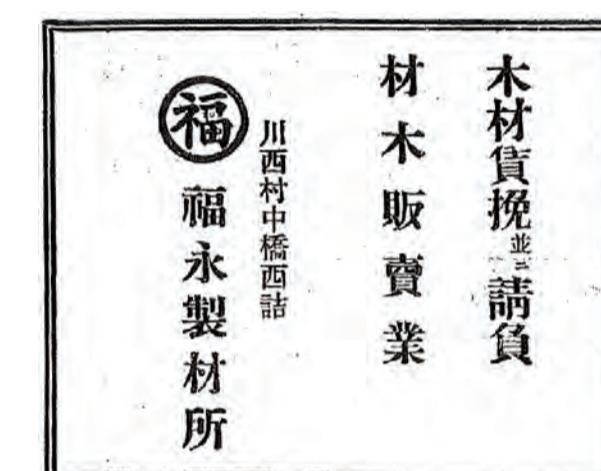 木材賃挽並ニ請負
材木販賣業
川西村中橋西詰
福 福永製材所